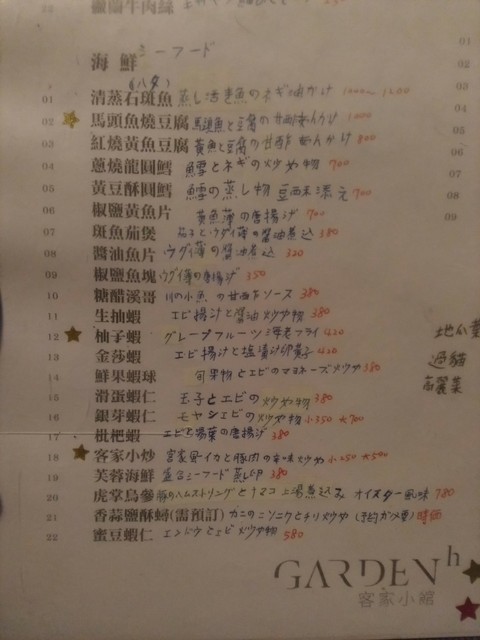 12 椒麻牛肉絲
海鮮 シーフード
01 清蒸石斑魚 蒸し活き魚のネギ油かけ 1000～1200
02 馬頭魚燒豆腐 馬頭魚と豆腐の甘酢あんかけ 1000
03 紅燒黃魚豆腐 黃魚と豆腐の甘酢あんかけ 800
04 蔥燒龍圓鱈 鱈とネギの炒め物 700
05 黃豆酥圓鱈 鱈の蒸し物 豆酥添え 700
06 椒鹽黃魚片 黃魚薄の唐揚げ 700
07 斑魚茄煲 茄子とウグイ薄の醤油煮込 380
08 醬油魚片 ウグイ薄の醤油煮込 320
09 椒鹽魚塊 ウグイ薄の唐揚げ 350
10 糖醋溪哥 川の小魚の甘酢ソース 380
11 生抽蝦 エビ揚げと醤油炒め物 380
12 柚子蝦 グレープフルーツ海老フライ 420
13 金莎蝦 エビ揚げと塩漬け卵黄子 420
14 鮮果蝦球 旬果物とエビのマヨネーズ炒め 380
15 滑蛋蝦仁 玉子とエビの炒め物 380
16 銀芽蝦仁 モヤシエビの炒め物 小350 大700
17 枇杷蝦 エビと湯葉の唐揚げ 380
18 客家小炒 客家風イカと豚肉の辛味炒め 小250 大500
19 芙蓉海鮮 シーフード蒸し 380
20 虎掌烏參 豚のハムストリングとナマコ 上湯煮込み オイスター風味 780
21 香蒜鹽酥蟳(需預訂) カニのニンニクとチリ炒め (予約が必要) 時価
22 蜜豆蝦仁 エンドウとエビ炒め物 580
01
02
03
04
06
07
08
09
過貓
高麗菜
GARDEN h
客家小館